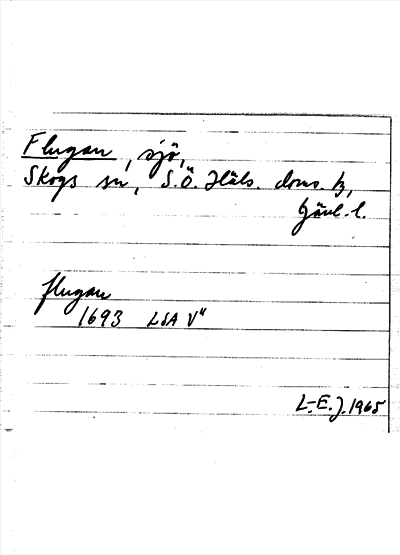 Flugan, sjö,
Skogs sn, S.Ö. Häls. doms. b,
Gävl. l.
flugan
1693 LSA V"
L-E.J. 1965